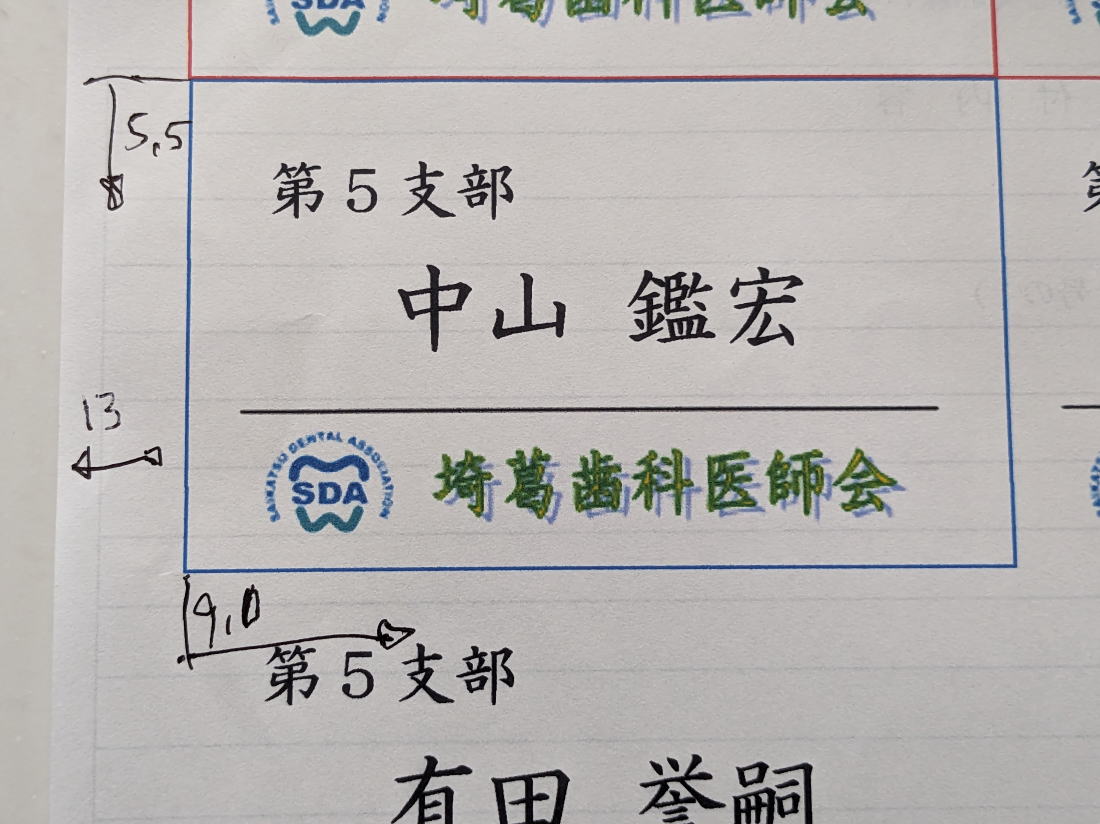 SDA
埼葛歯科医師会
5,5
第5支部
中山 鑑宏
13
SAIKATSU DENTAL ASSOCIATION
SDA
埼葛歯科医師会
9,0
第5支部
有田 誉嗣